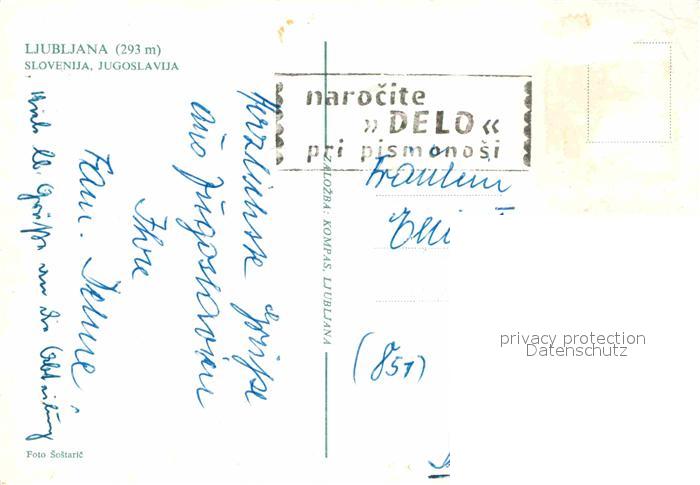 LJUBLJANA (293 m)
SLOVENIJA, JUGOSLAVIJA
naročite
» DELO «
pri pismonoši
Herzlichste Grüße
aus Jugoslavien
Ihre
Fam.
Viele lb. Grüße an die Abteilung
ZALOŽBA: KOMPAS, LJUBLJANA
Fräulein
Elli
(851)
Foto Šoštarič
privacy protection
Datenschutz